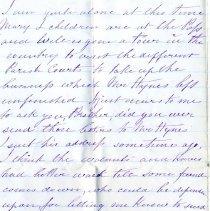 I am quite alone at this time
Mary & children are at the
and Will is gone a tour in the
country to visit the different
Parish Courts to take up the
business which Mr Hynes left
unfinished. It just occurs to me
to ask you, Brother did you ever
send those books to Mr Hynes
I sent his address sometime ago.
I think the and
had better wait till some friend
comes down, who could be depended
upon for letting me know to send